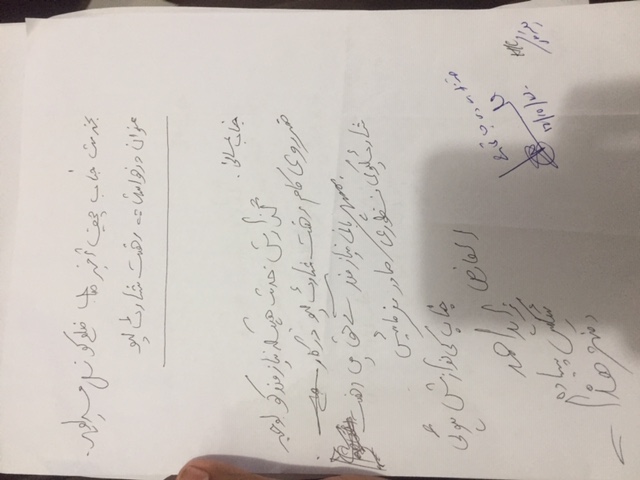 بخدمت جناب چیف آفیسر صاحب ضلع کونسل
عنوان درخواست رخصت شارٹ لیو
جناب عالی
گزارش خدمت ہیکہ نیازمند کو بوجہ
ضروری کام رخصت شارٹ لیو درکار ہے
مہربانی نیازمند کے حق میں رخصت
شارٹ لیو کی منظوری صادر فرمائیں
جناب کی نوازش ہوگی
العارض
زاہد احمد
پیادہ
دفتر ھذا